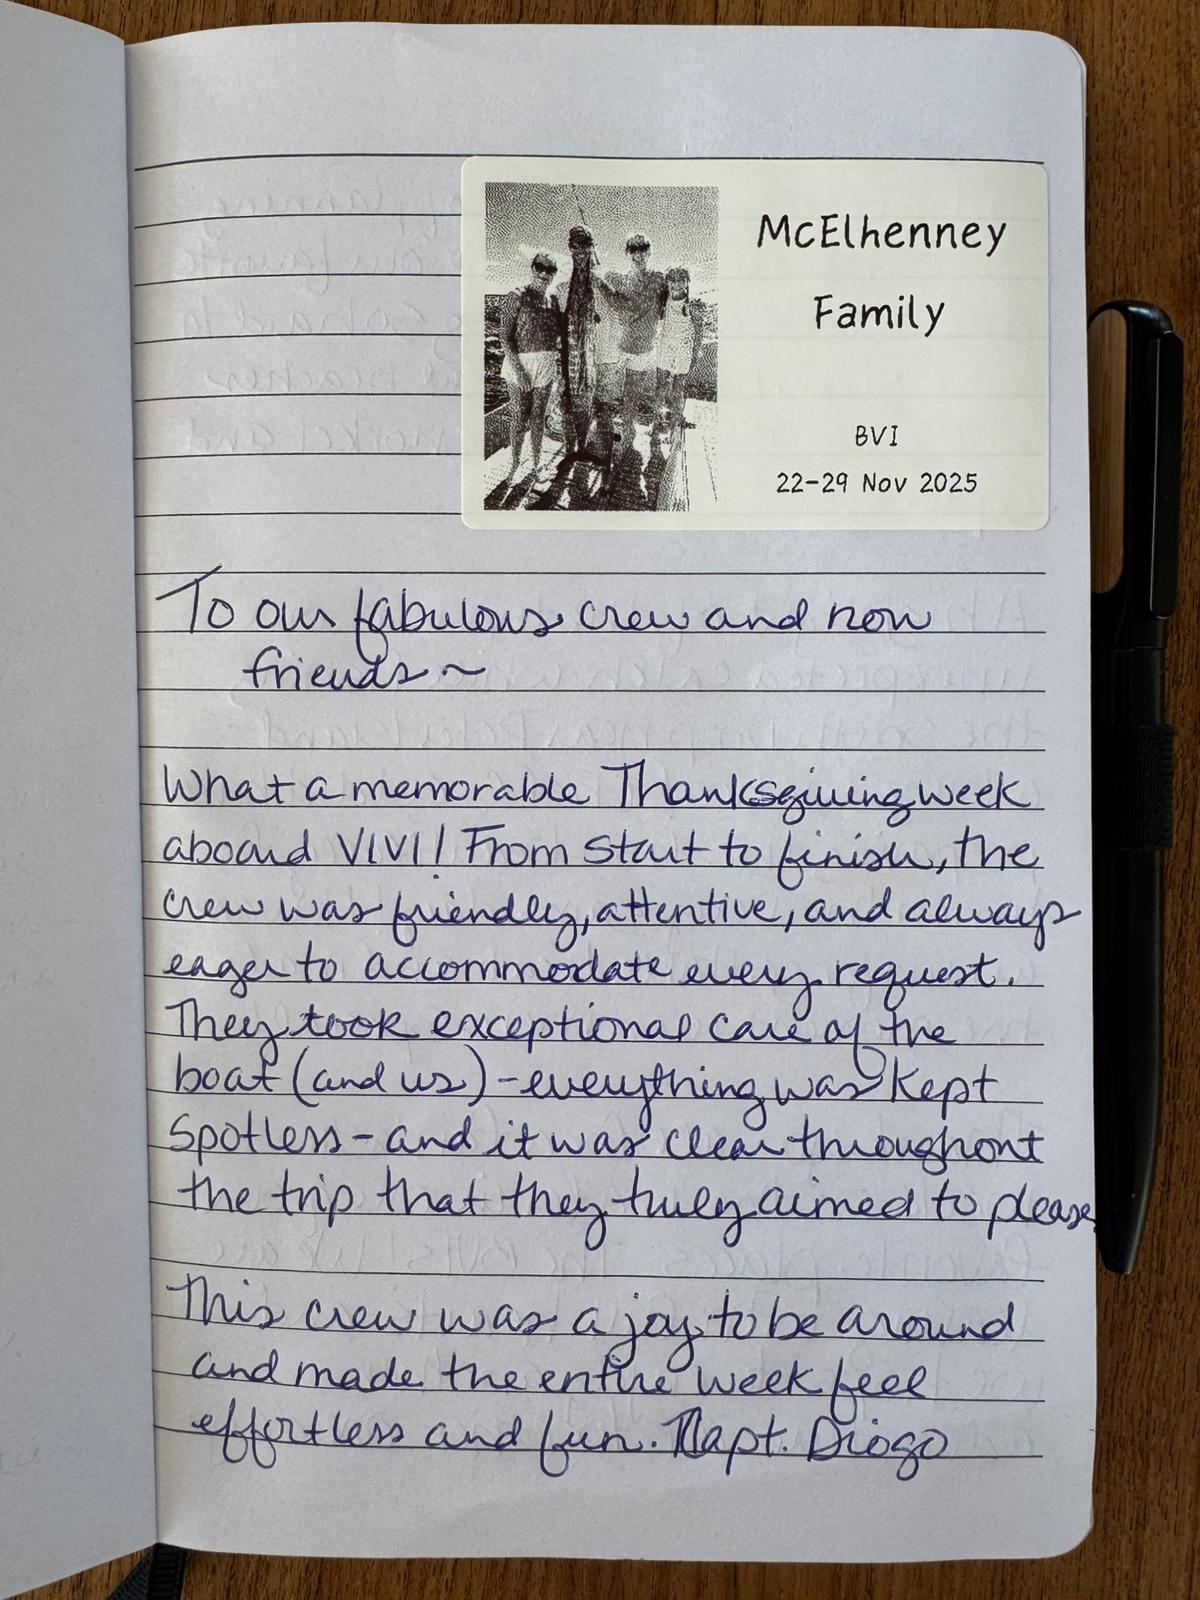 McElhenney
Family
BVI
22-29 Nov 2025
To our fabulous crew and now
friends~
What a memorable Thanksgiving week
aboard VIVI! From start to finish, the
crew was friendly, attentive, and always
eager to accommodate every request.
They took exceptional care of the
boat (and us) - everything was kept
spotless - and it was clear throughout
the trip that they truly aimed to please.
This crew was a joy to be around
and made the entire week feel
effortless and fun. Capt. Diogo